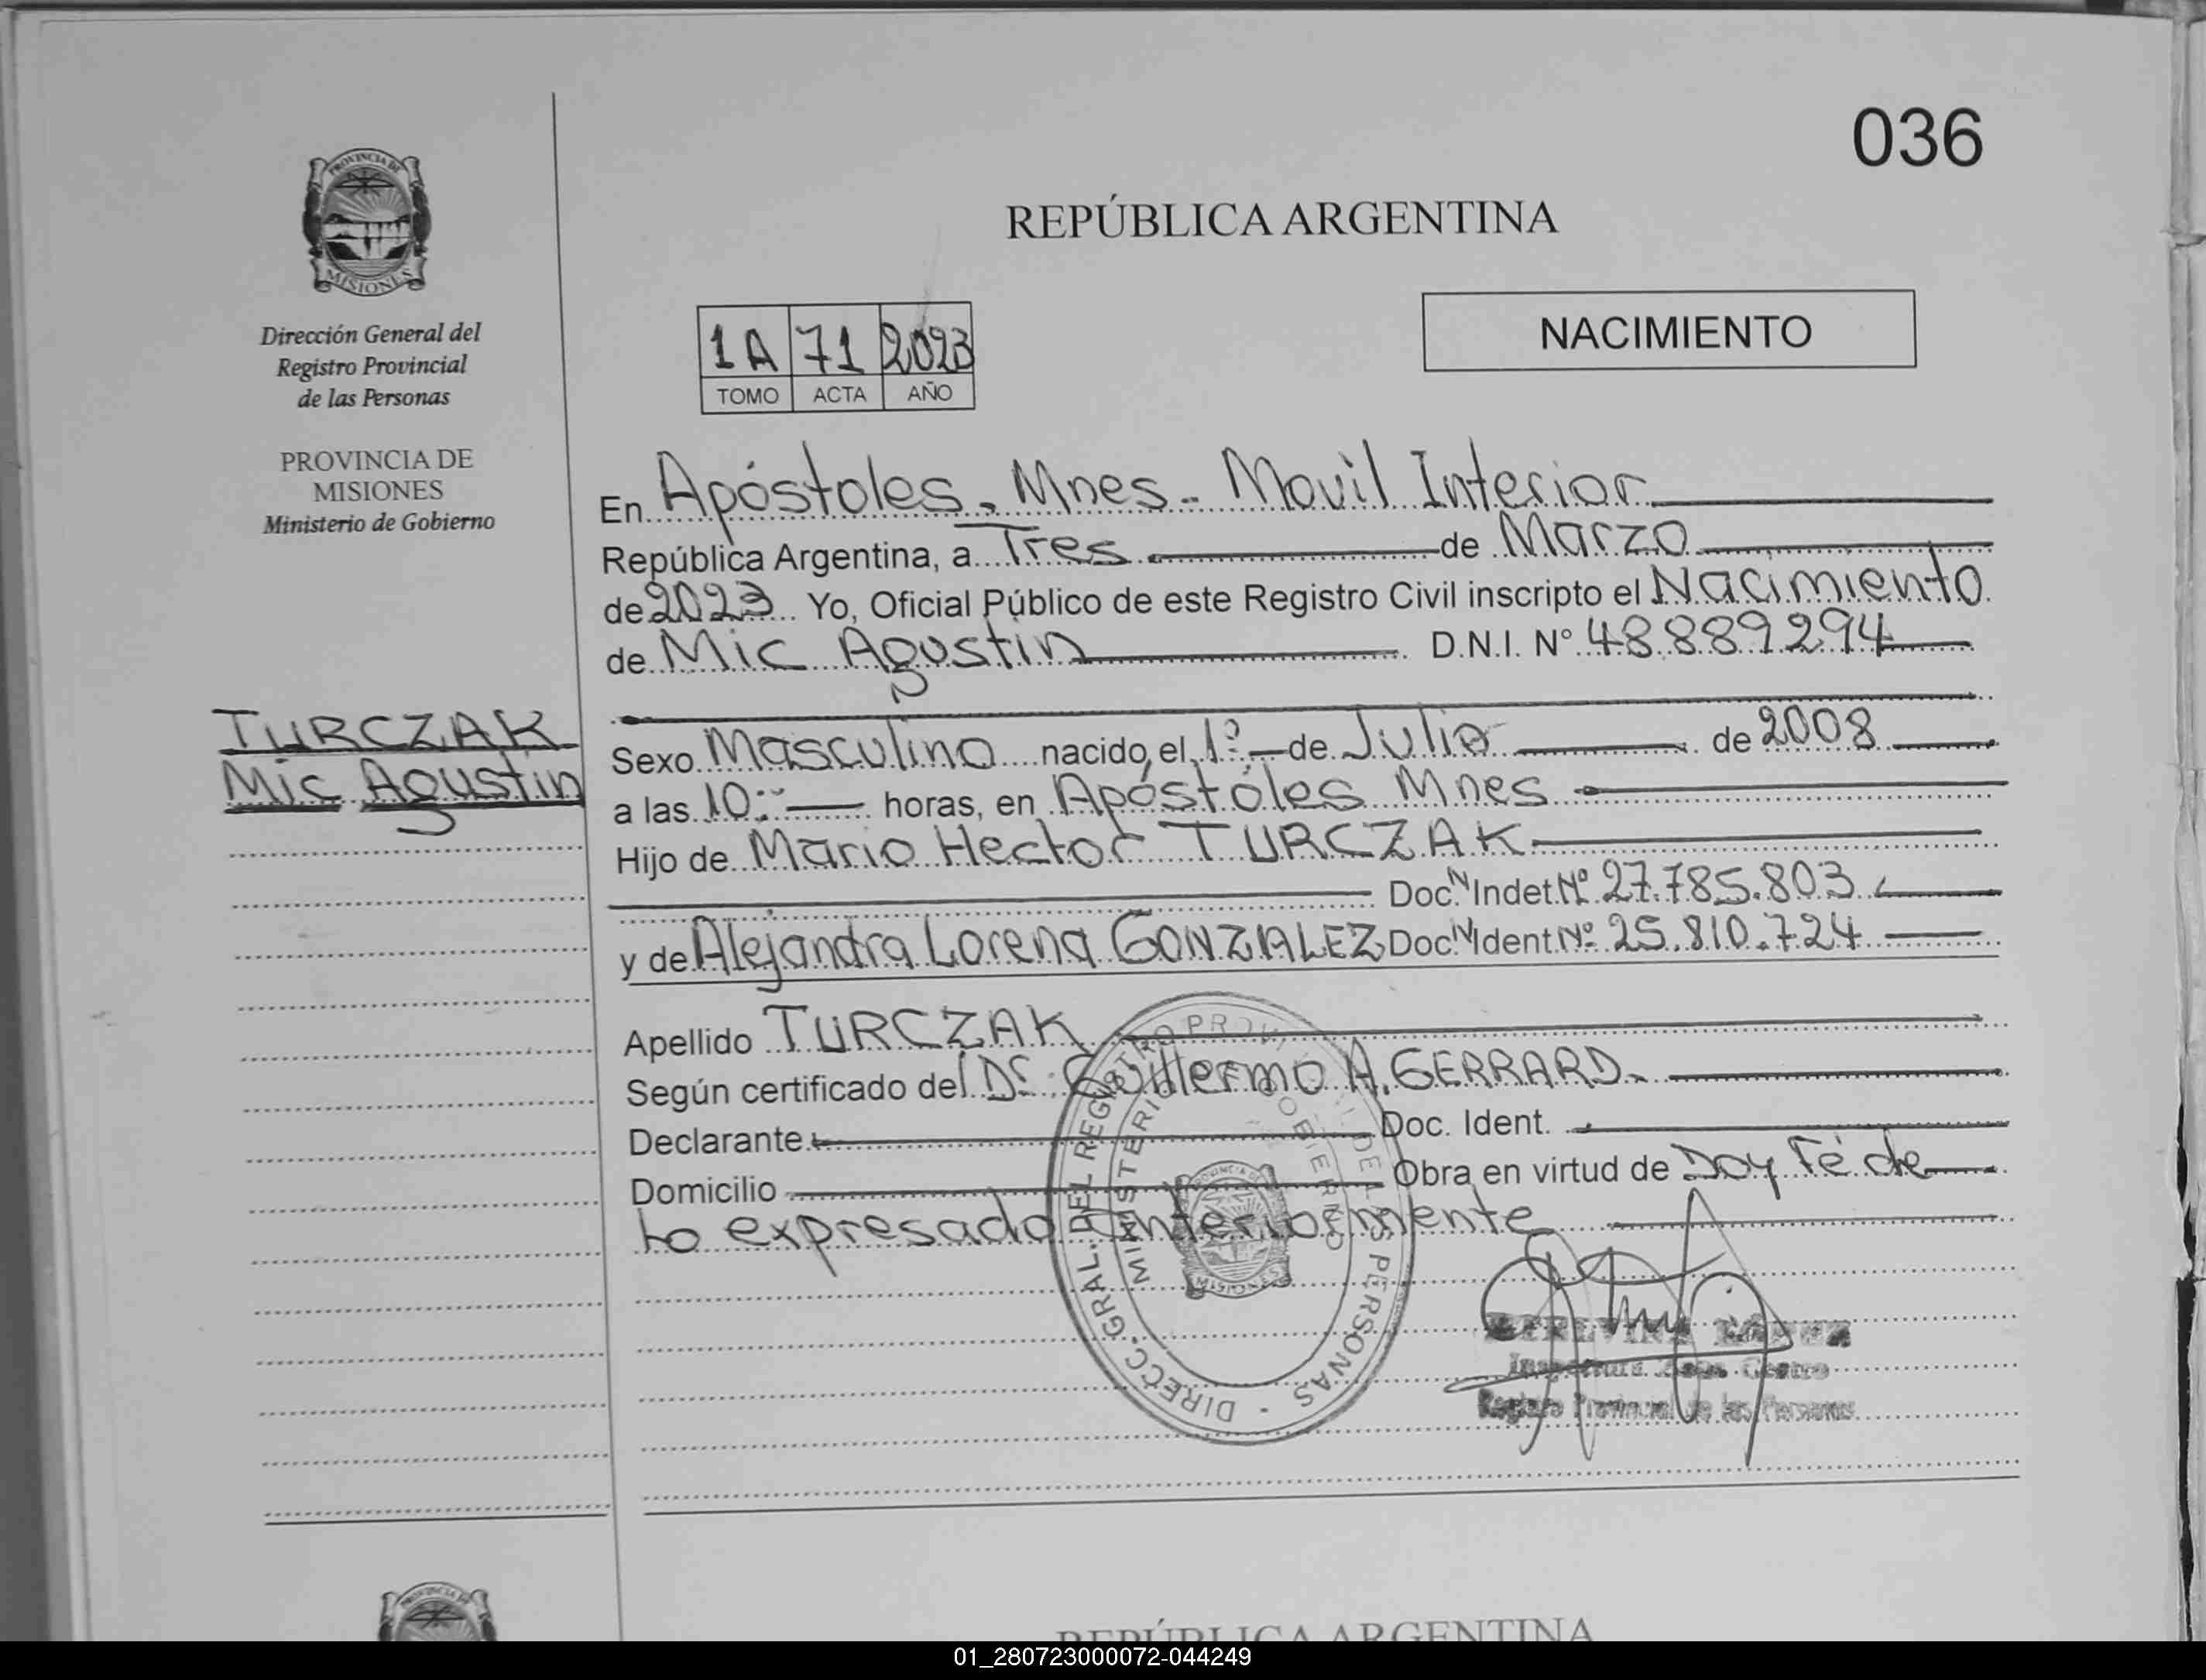 036
PROVINCIA DE
MISIONES
REPÚBLICA ARGENTINA
NACIMIENTO
Dirección General del
Registro Provincial
de las Personas
PROVINCIA DE
MISIONES
Ministerio de Gobierno
1A 71 2023
TOMO ACTA AÑO
En Apóstoles - Mnes - Movil Interior
República Argentina, a Tres de Marzo
de 2023 Yo, Oficial Público de este Registro Civil inscripto el Nacimiento
de Mic Agustin D.N.I. N° 48889294
TURCZAK
Mic Agustin
Sexo Masculino nacido el 1° de Julio de 2008
a las 10:- horas, en Apóstoles Mnes
Hijo de Mario Hector TURCZAK
Doc. N Indet. N° 27.785.803
y de Alejandra Lorena GONZALEZ Doc. N Ident. N° 25.810.724
Apellido TURCZAK
Según certificado del Dr. Guillermo A. GERRARD.
Declarante Doc. Ident.
Domicilio Obra en virtud de Doy Fé de
lo expresado anteriormente
DIRECC. GRAL. DEL REGISTRO PROVI DE LAS PERSONAS -
MINISTERIO GOBIERNO
PROVINCIA
MISIONES
Registro Provincial de las Personas
REPÚBLICA ARGENTINA
01_280723000072-044249